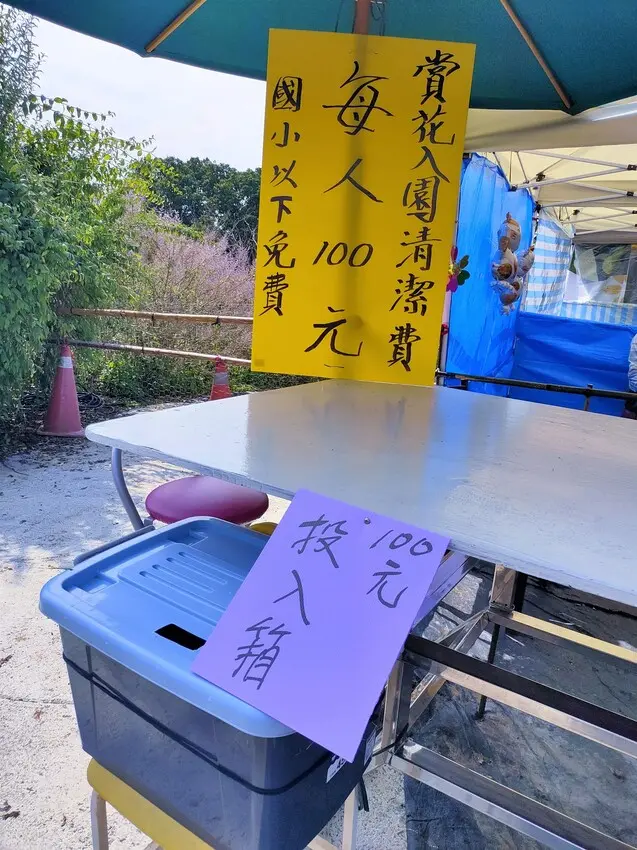 賞花入園清潔費
每人100元
國小以下免費
100元
投入箱